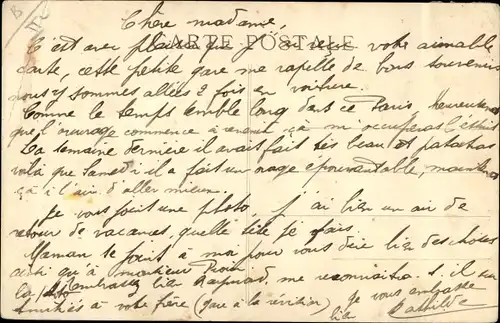 Chère madame,
CARTE POSTALE
C'est avec plaisir que j'ai reçu votre aimable
carte, cette petite gare me rapelle de bons souvenirs
nous y sommes allés 2 fois en voiture.
Comme le temps semble long dans ce Paris, heureusement
que l'ouvrage commence à revenir, çà m'occupera l'
La semaine dernière il avait fait très beau et patatras
voilà que Samedi il a fait un orage épouvantable, maintenant
çà à l'air d'aller mieux.
Je vous joint une photo, j'ai bien un air de
retour de vacances, quelle tête je fais
Maman se joint à moi pour vous dire bien des choses
ainsi qu'à monsieur
la photo embrassez bien Raymond, me reconnaitra-t-il sur
Amitiés à votre frère (gare à la révision) Je vous embrasse
bien